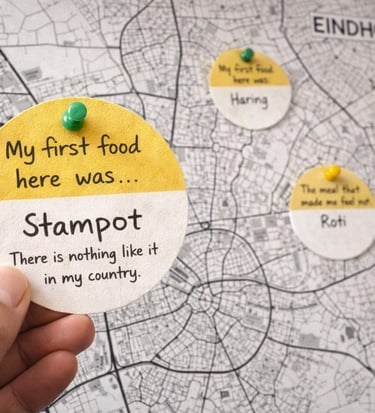 EINDH
My first food
here was:
Haring
My first food
here was...
Stampot
There is nothing like it
in my country.
The meal that
made me feel
Roti